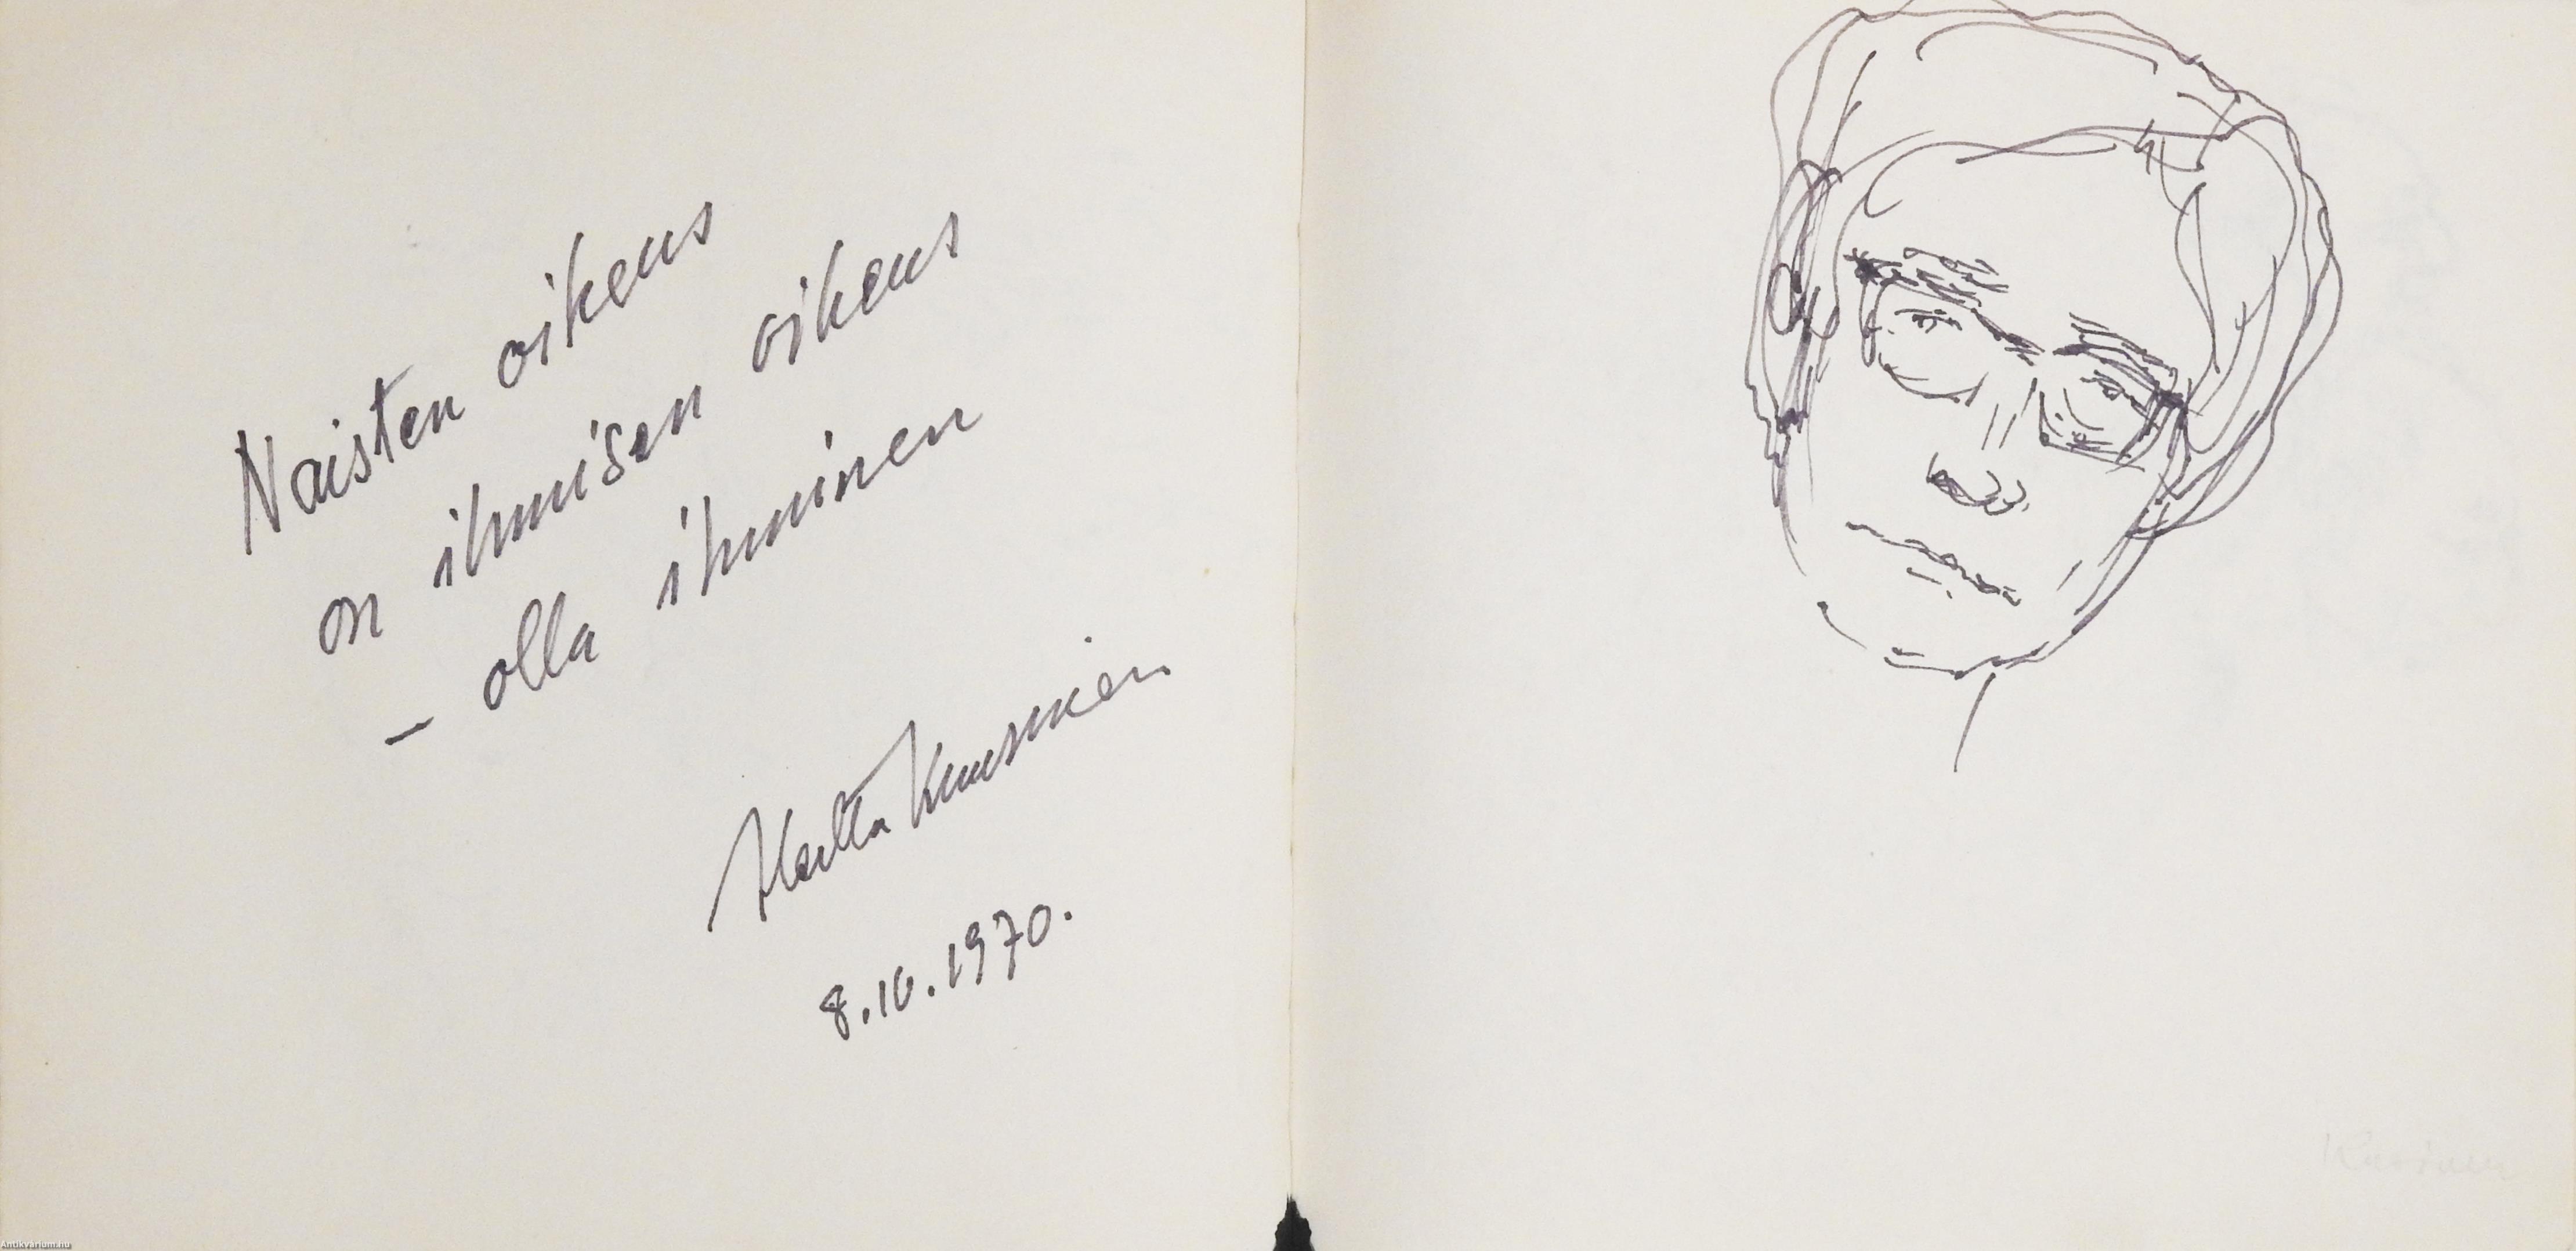 Naisten oikeus
on ihmisen oikeus
– olla ihminen
Hertta Kuusinen
8.10.1970.
Antikvarium.hu